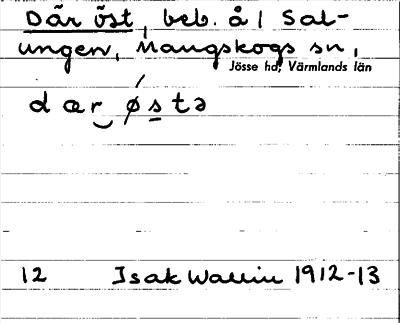 Där öst, beb. å 1 Sal-
ungen, Mangskogs sn,
Jösse hd, Värmlands län
dær østə
12 Isak Wallin 1912-13